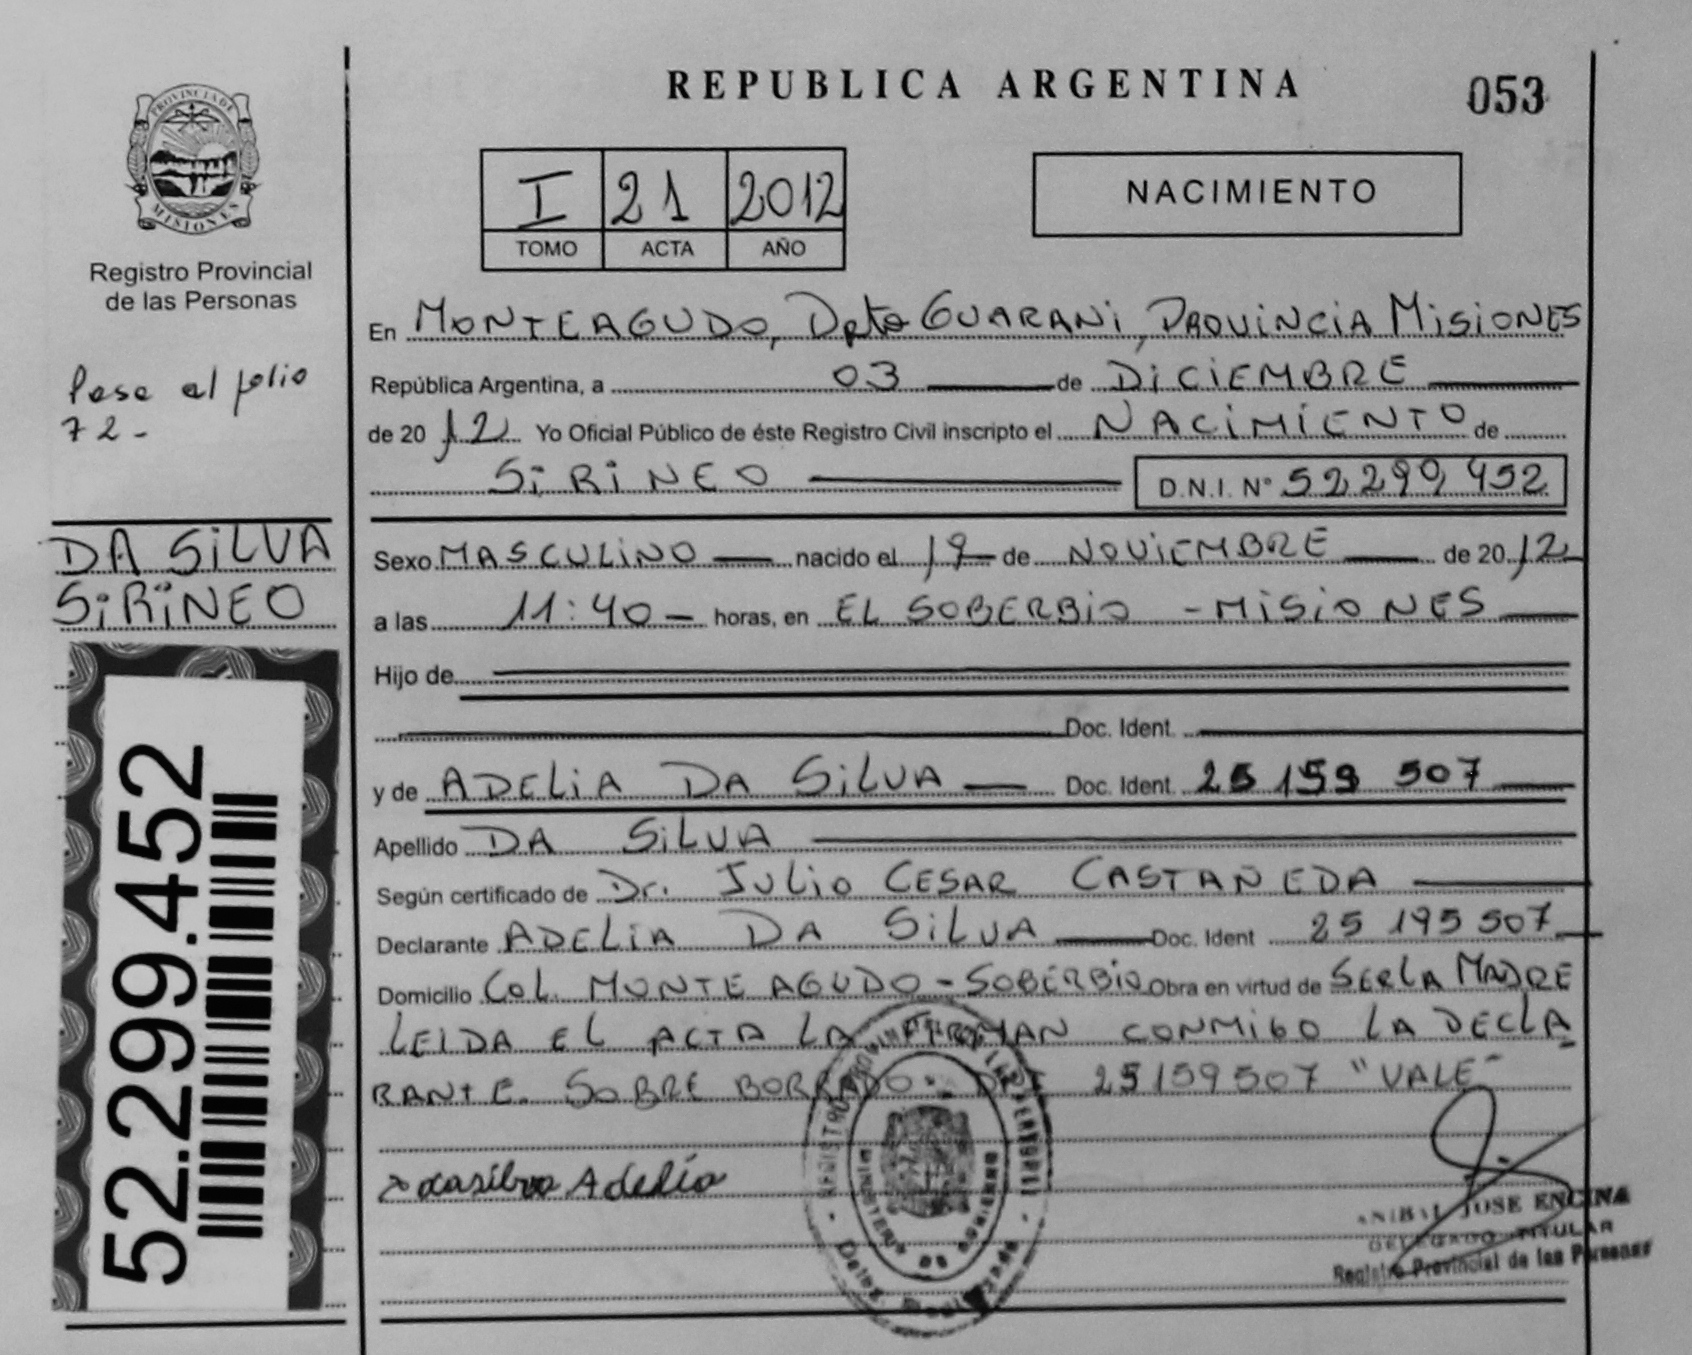 REPUBLICA ARGENTINA
053
PROVINCIA DE
MISIONES
Registro Provincial
de las Personas
I 21 2012
TOMO ACTA AÑO
NACIMIENTO
En MONTEAGUDO, Dpto GUARANi, PROViNCiA MiSiONES
República Argentina, a 03 de DiCiEMBRE
de 20 12 Yo Oficial Público de éste Registro Civil inscripto el NACiMiENTO de
SiRiNEO D.N.I. N° 52299452
Pase al folio
72-
DA SiLVA
SiRiNEO
52.299.452
Sexo MASCULiNO nacido el 19 de NOViEMBRE de 20 12
a las 11:40 horas, en EL SOBERBiO - MiSiONES
Hijo de
Doc. Ident.
y de ADELiA DA SiLVA Doc. Ident. 25 159 507
Apellido DA SiLVA
Según certificado de Dr. JULiO CESAR CASTAÑEDA
Declarante ADELiA DA SiLVA Doc. Ident 25 195 507
Domicilio COL. MONTE AGUDO - SOBERBiO Obra en virtud de SER LA MADRE
LEIDA EL ACTA LA FIRMAN CONMIGO LA DECLA
RANTE. SOBRE BORRADO. DNI 25159507 "VALE"
x dasilva Adelia
ANIBAL JOSE ENCINA
DELEGADO TITULAR
Registro Provincial de las Personas
MINISTERIO DE GOBIERNO